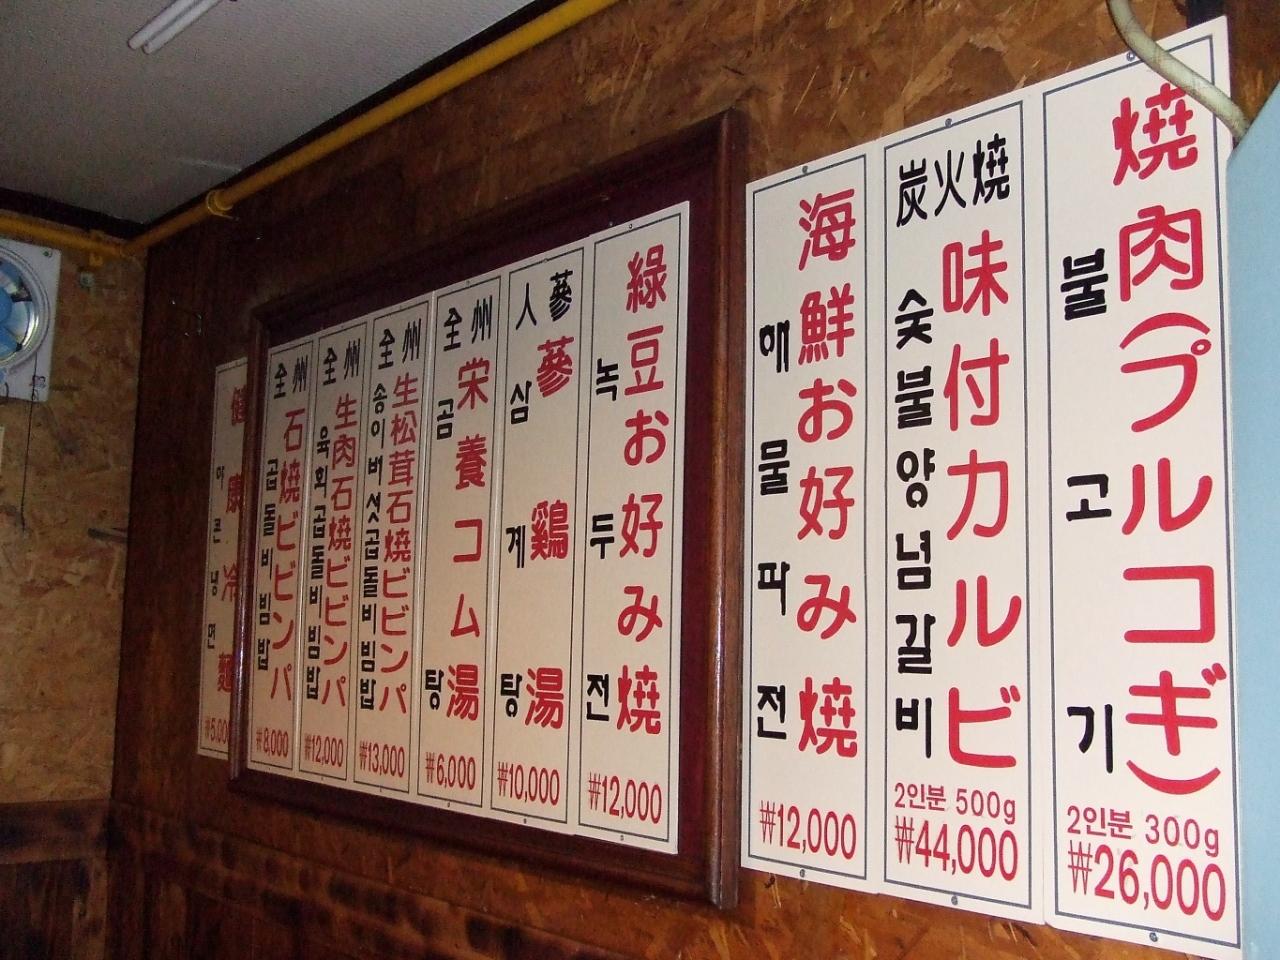 燒肉(プルコギ)
불고기
2인분 300g
₩26,000
炭火燒
味付カルビ
숯불양념갈비
2인분 500g
₩44,000
海鮮お好み燒
해물파전
₩12,000
綠豆お好み燒
녹두전
₩12,000
人蔘
蔘鷄湯
삼계탕
₩10,000
全州
栄養コム湯
곰탕
₩6,000
全州
生松茸石燒ビビンパ
송이버섯곱돌비빔밥
₩13,000
全州
生肉石燒ビビンパ
육회곱돌비빔밥
₩12,000
全州
石燒ビビンパ
곱돌비빔밥
₩8,000
健康冷麵
냉면